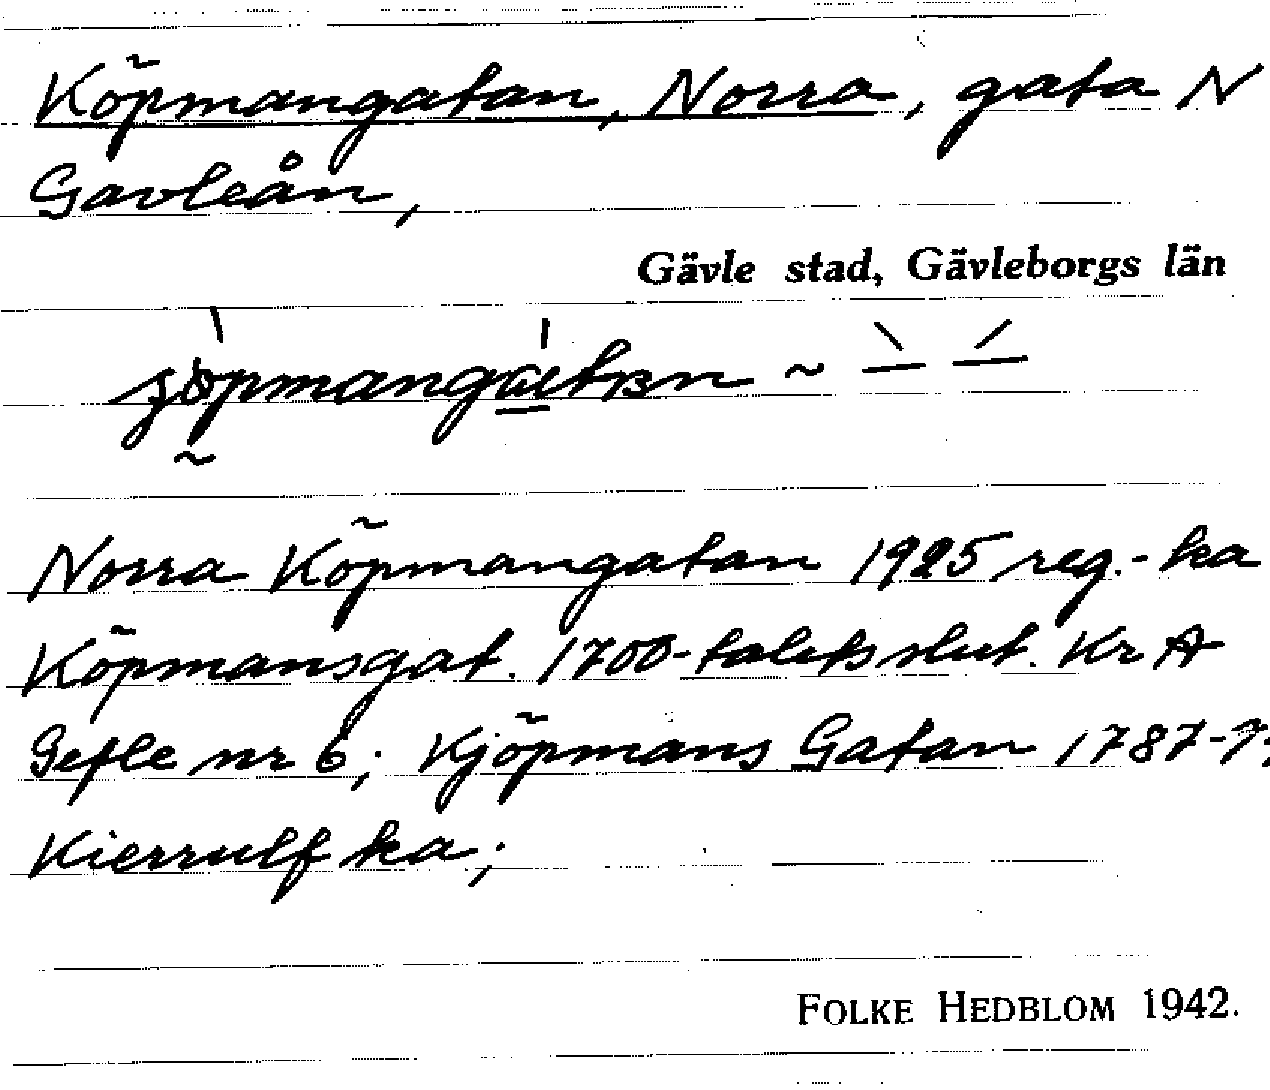 Köpmangatan, Norra, gata N
Gavleån,
Gävle stad, Gävleborgs län
Norra Köpmangatan 1925 reg.-ka
Köpmansgat. 1700-talets slut. Kr A
Gefle nr 6; Kjöpmans Gatan 1787-9:
Kierrulf ka;
FOLKE HEDBLOM 1942.